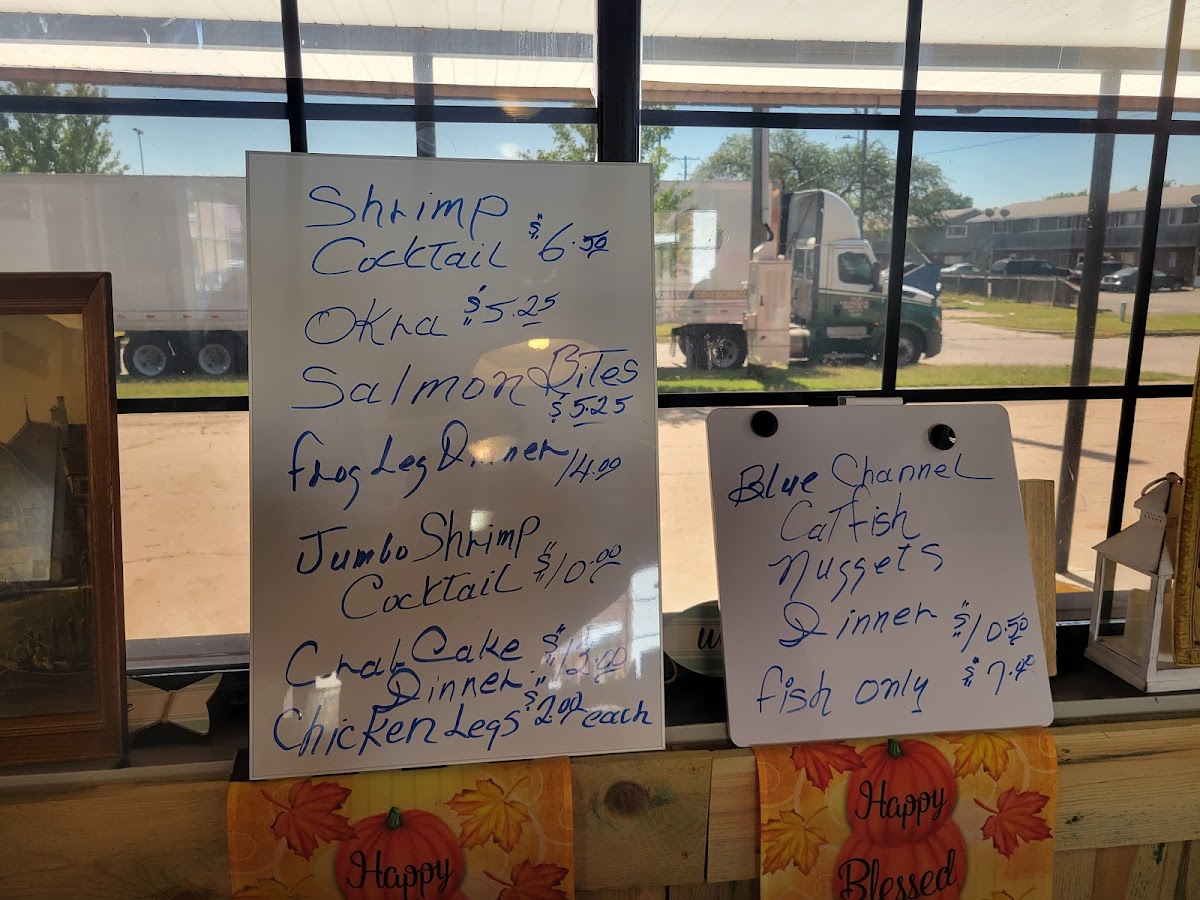 Shrimp
Cocktail $6.50
OKra $5.25
Salmon Bites
$5.25
Frog Leg Dinner 14.00
Jumbo Shrimp
Cocktail $10.00
Crab Cake $13.00
Dinner
Chicken Legs $2.00 each
Blue Channel
Catfish
Nuggets
Dinner $10.50
fish only $7.40
Happy
Happy
Blessed